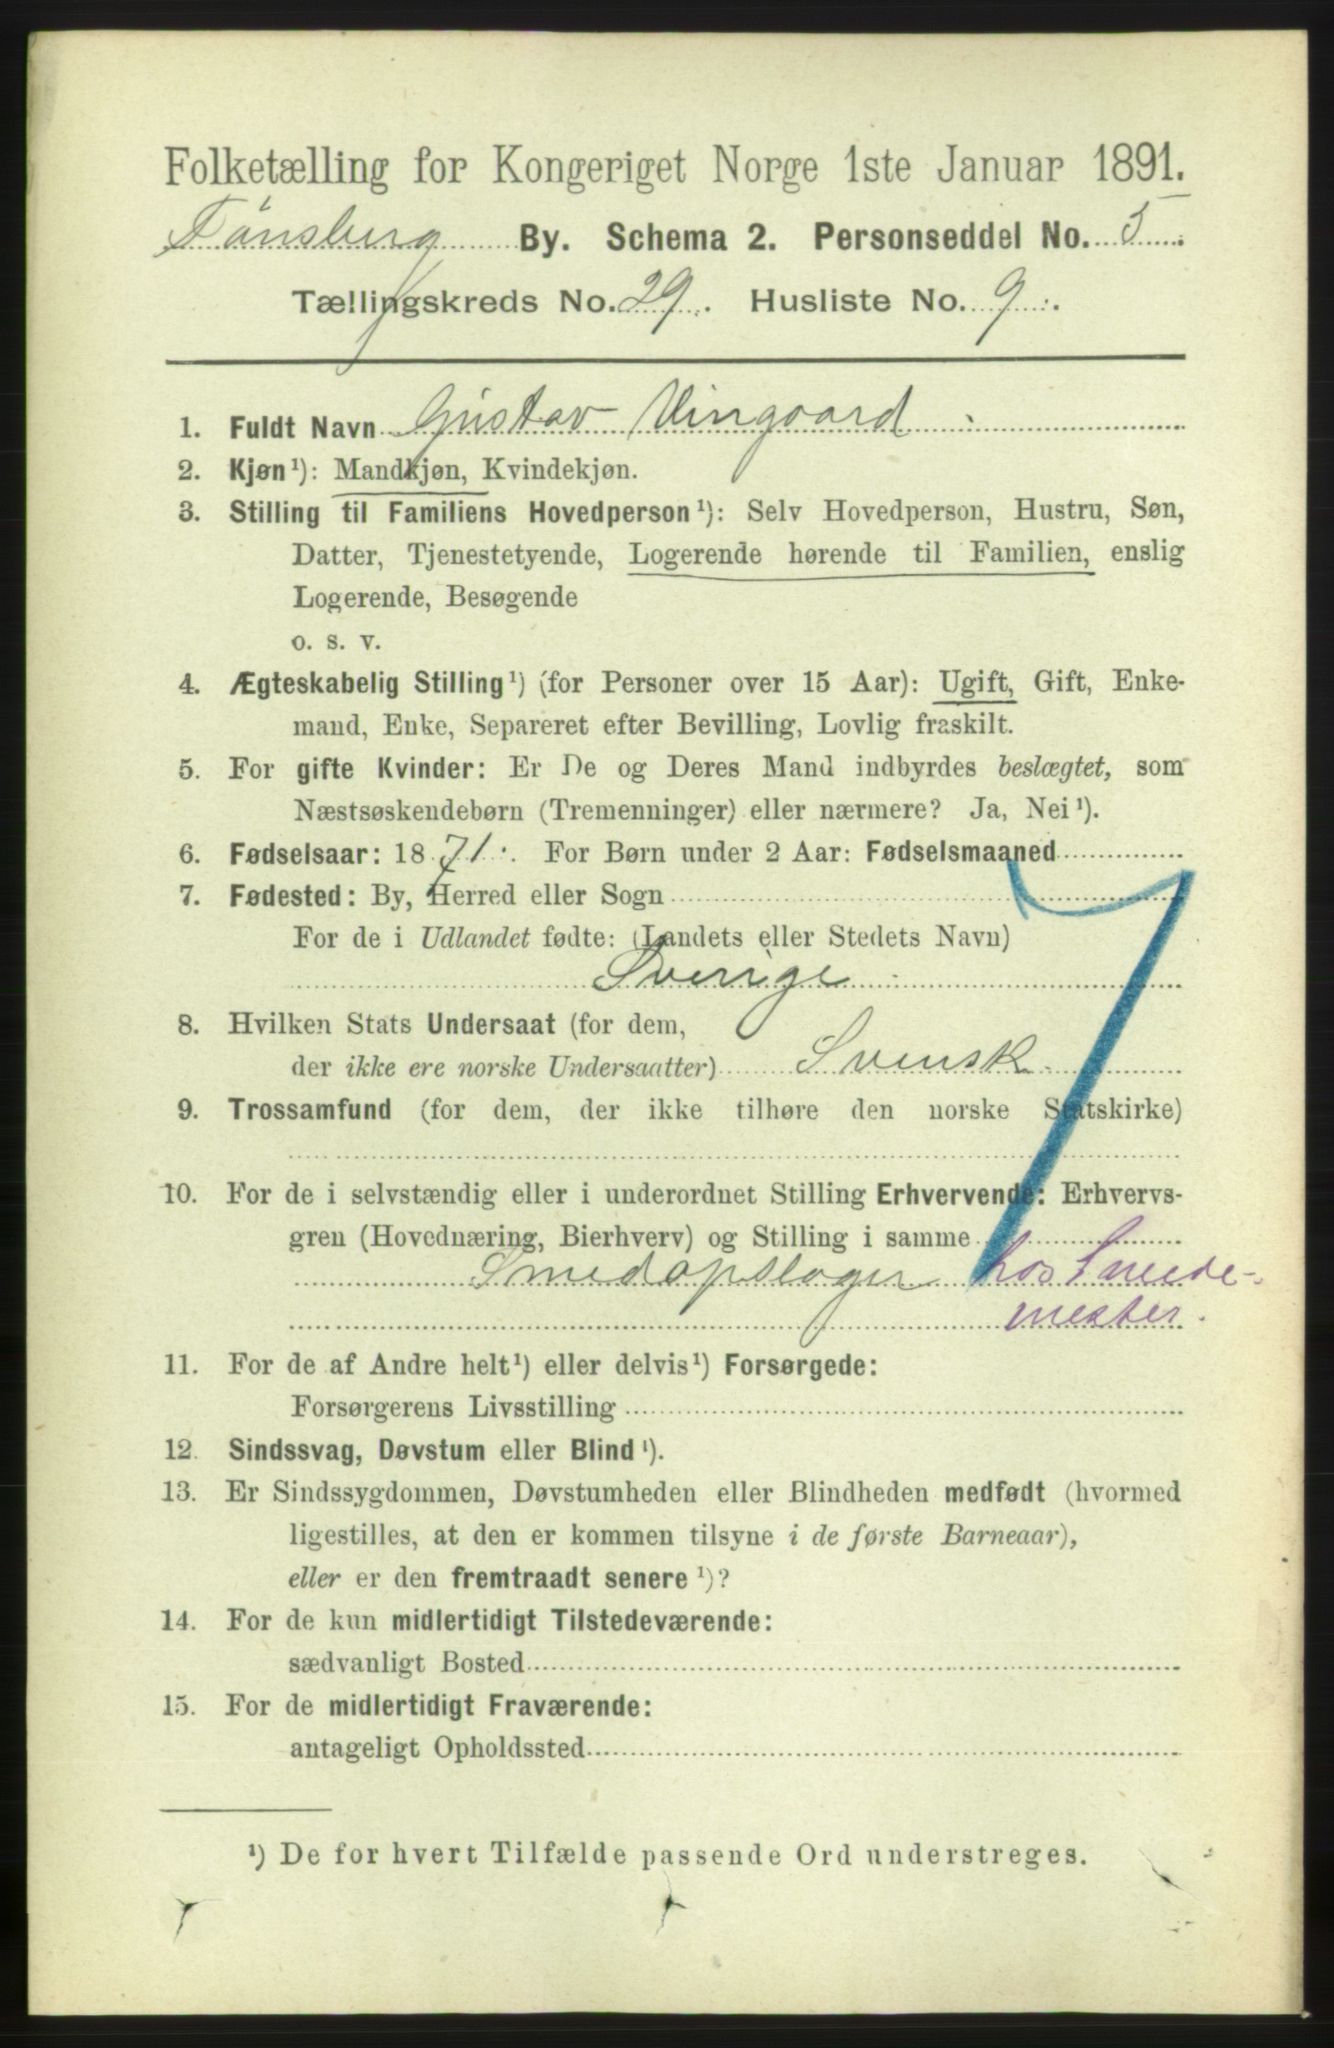 Folketælling for Kongeriget Norge 1ste Januar 1891.
Tönsberg By. Schema 2. Personseddel No. 5
Tællingskreds No. 29. Husliste No. 9.
1. Fuldt Navn Gustav Vingaard
2. Kjøn¹): Mandkjøn, Kvindekjøn.
3. Stilling til Familiens Hovedperson¹): Selv Hovedperson, Hustru, Søn,
Datter, Tjenestetyende, Logerende hørende til Familien, enslig
Logerende, Besøgende
o. s. v.
4. Ægteskabelig Stilling¹) (for Personer over 15 Aar): Ugift, Gift, Enke-
mand, Enke, Separeret efter Bevilling, Lovlig fraskilt.
5. For gifte Kvinder: Er De og Deres Mand indbyrdes beslægtet, som
Næstsøskendebørn (Tremenninger) eller nærmere? Ja, Nei¹).
6. Fødselsaar: 1871. For Børn under 2 Aar: Fødselsmaaned
7. Fødested: By, Herred eller Sogn
For de i Udlandet fødte: (Landets eller Stedets Navn)
Sverige
8. Hvilken Stats Undersaat (for dem,
der ikke ere norske Undersaatter) Svensk.
9. Trossamfund (for dem, der ikke tilhøre den norske Statskirke)
10. For de i selvstændig eller i underordnet Stilling Erhvervende: Erhvervs-
gren (Hovednæring, Bierhverv) og Stilling i samme
Smedopslager hos Smede-
mester.
11. For de af Andre helt¹) eller delvis¹) Forsørgede:
Forsørgerens Livsstilling
12. Sindssvag, Døvstum eller Blind¹).
13. Er Sindssygdommen, Døvstumheden eller Blindheden medfødt (hvormed
ligestilles, at den er kommen tilsyne i de første Barneaar),
eller er den fremtraadt senere¹)?
14. For de kun midlertidigt Tilstedeværende:
sædvanligt Bosted
15. For de midlertidigt Fraværende:
antageligt Opholdssted
¹) De for hvert Tilfælde passende Ord understreges.